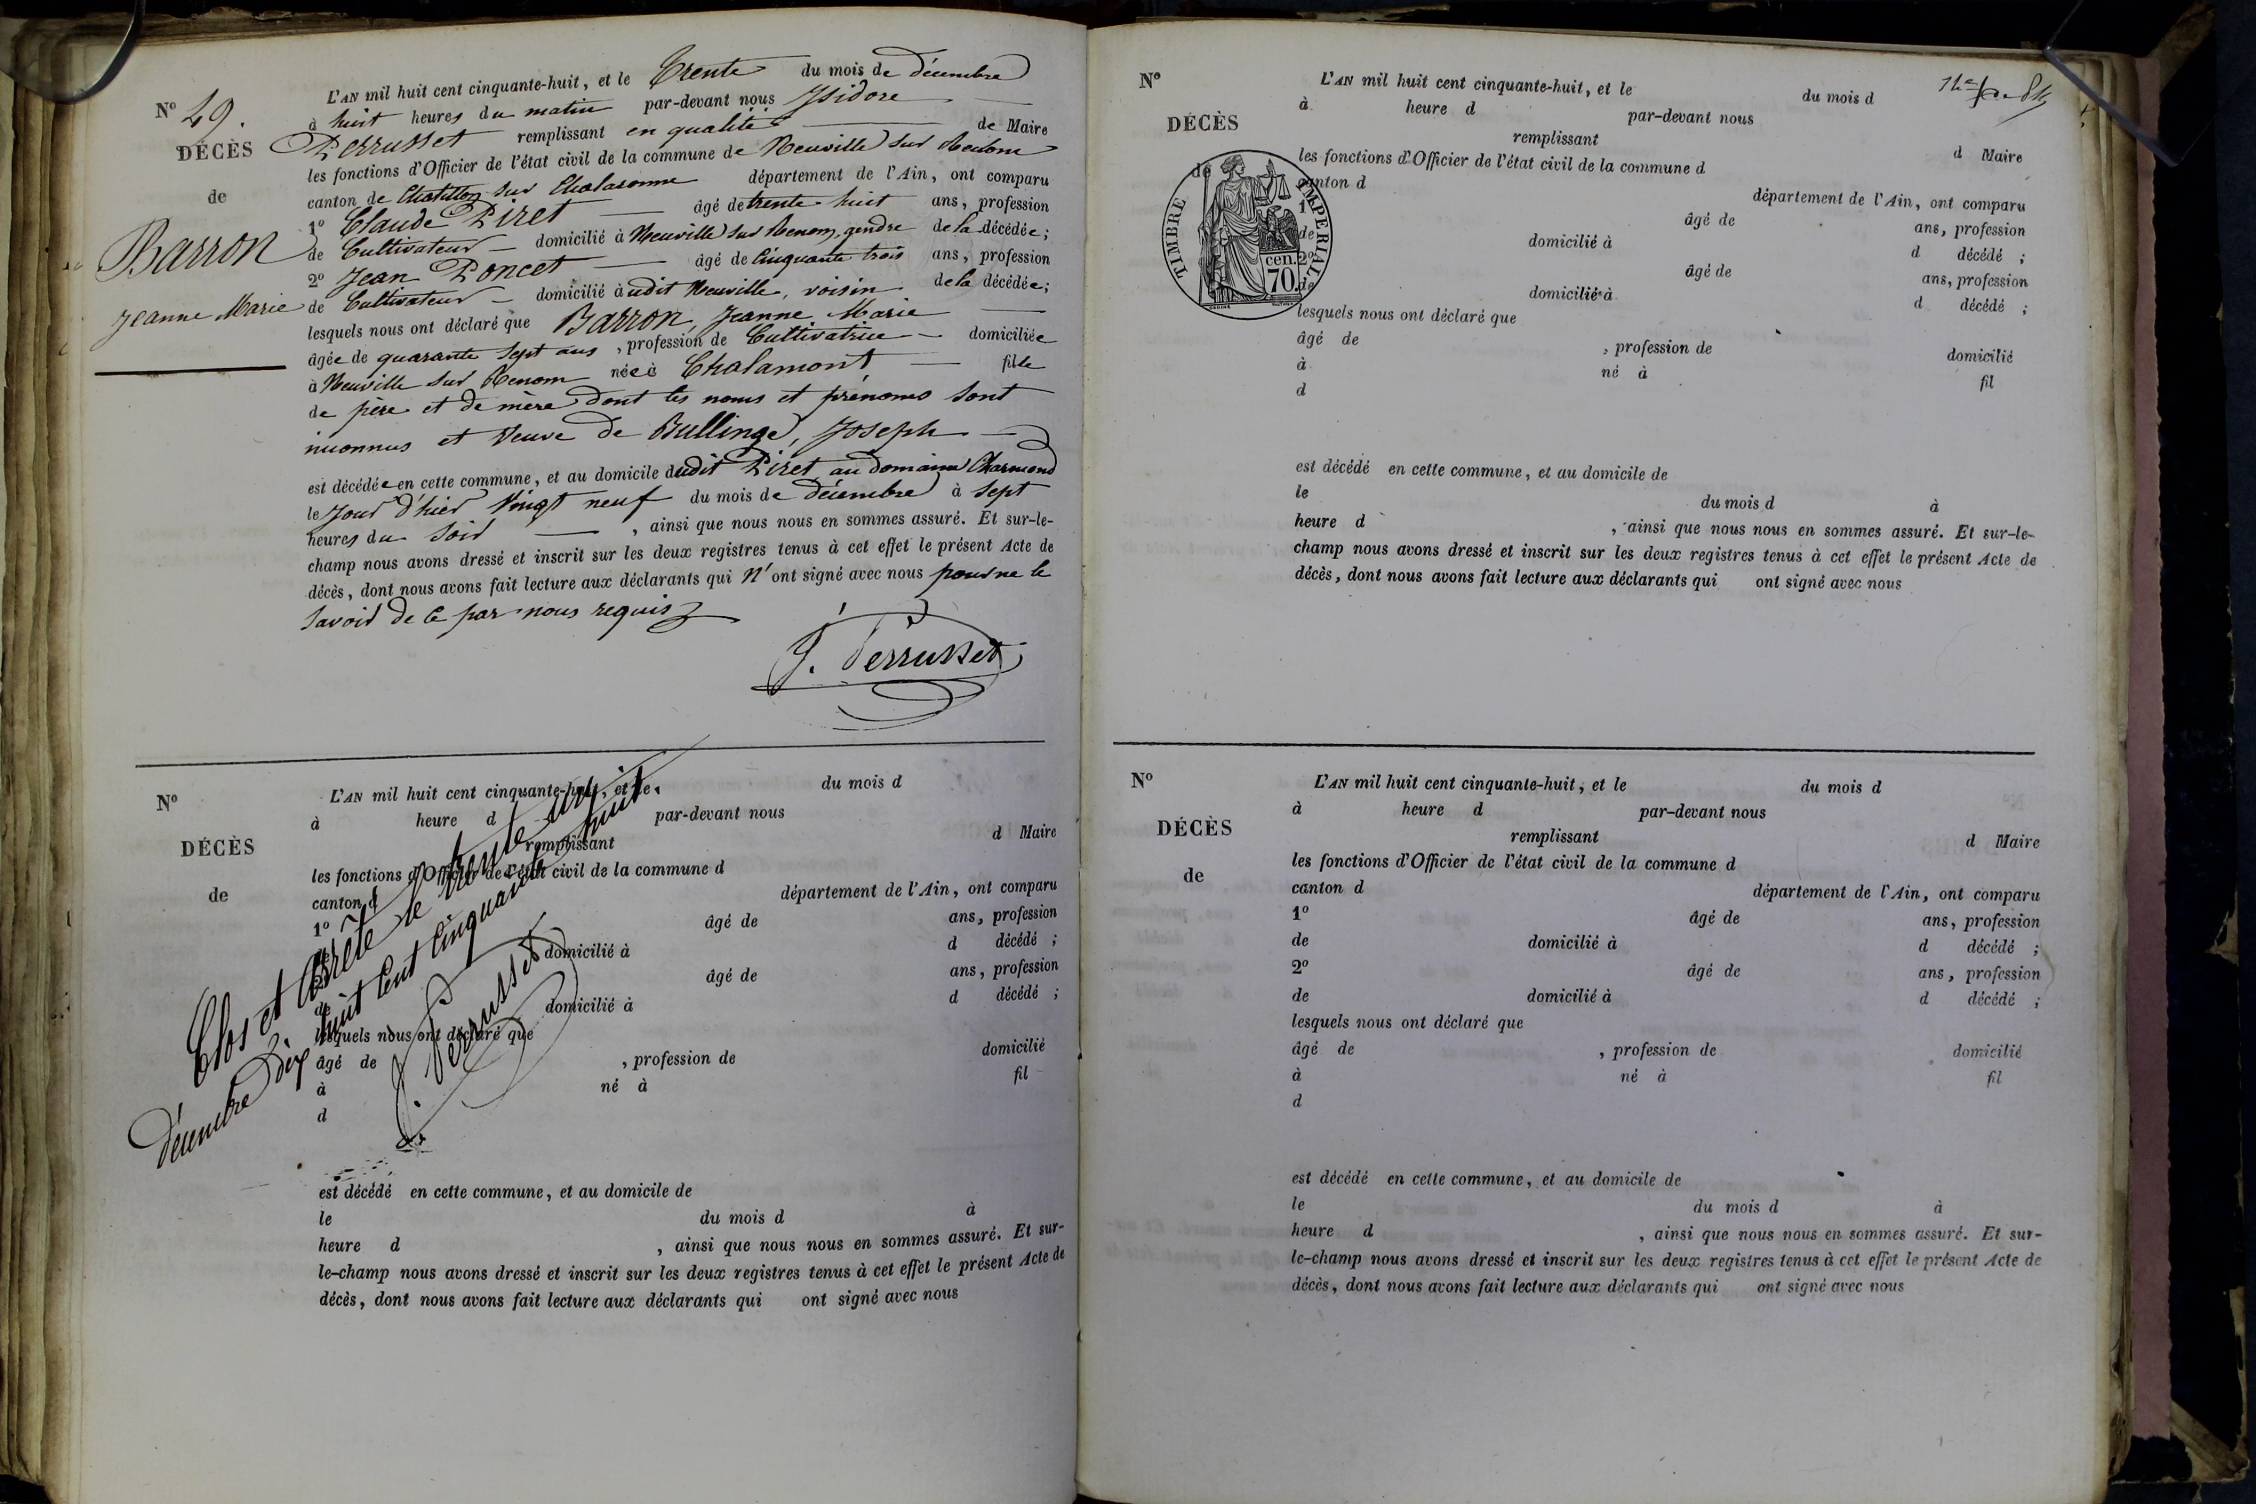 N° 49.
DÉCÈS
de
Barron
Jeanne Marie
L'AN mil huit cent cinquante-huit, et le Trente du mois de décembre
à huit heures du matin par-devant nous Isidore
Perrusset remplissant en qualité de Maire
les fonctions d'Officier de l'état civil de la commune de Neuville sur Renom
canton de Chatillon sur Chalaronne département de l'Ain, ont comparu
1° Claude Piret âgé de trente huit ans, profession
de Cultivateur domicilié à Neuville sur Renom, gendre de la décédée;
2° Jean Poncet âgé de Cinquante trois ans, profession
de Cultivateur domicilié àudit Neuville, voisin de la décédée;
lesquels nous ont déclaré que Barron, Jeanne Marie
âgée de quarante sept ans, profession de Cultivatrice domiciliée
à Neuville sur Renom née à Chalamont fille
de père et de mère dont les noms et prénoms sont
inconnus et Veuve de Bullinge, Joseph
est décédée en cette commune, et au domicile dudit Piret au domaine Charmond
le jour d'hier Vingt neuf du mois de décembre à sept
heures du soir, ainsi que nous nous en sommes assuré. Et sur-le-
champ nous avons dressé et inscrit sur les deux registres tenus à cet effet le présent Acte de
décès, dont nous avons fait lecture aux déclarants qui n'ont signé avec nous pour ne le
savoir de ce par nous requis
J. Perrusset
N°
DÉCÈS
de
L'AN mil huit cent cinquante-huit, et le du mois d
à heure d par-devant nous
remplissant d Maire
les fonctions d'Officier de l'état civil de la commune d
canton d département de l'Ain, ont comparu
1° âgé de ans, profession
de domicilié à d décédé ;
âgé de ans, profession
de domicilié à d décédé ;
lesquels nous ont déclaré que
âgé de , profession de domicilié
à né à fil
d
Clos et Arrêté le trente un
décembre dix huit Cent Cinquante huit.
J. Perrusset
est décédé en cette commune, et au domicile de
le du mois d à
heure d , ainsi que nous nous en sommes assuré. Et sur-
le-champ nous avons dressé et inscrit sur les deux registres tenus à cet effet le présent Acte de
décès, dont nous avons fait lecture aux déclarants qui ont signé avec nous
N°
DÉCÈS
de
TIMBRE IMPERIAL
cen.
70.
L'AN mil huit cent cinquante-huit, et le du mois d
à heure d par-devant nous
remplissant d Maire
les fonctions d'Officier de l'état civil de la commune d
canton d département de l'Ain, ont comparu
1° âgé de ans, profession
de domicilié à d décédé ;
2° âgé de ans, profession
de domicilié à d décédé ;
lesquels nous ont déclaré que
âgé de , profession de domicilié
à né à fil
d
est décédé en cette commune, et au domicile de
le du mois d à
heure d , ainsi que nous nous en sommes assuré. Et sur-le-
champ nous avons dressé et inscrit sur les deux registres tenus à cet effet le présent Acte de
décès, dont nous avons fait lecture aux déclarants qui ont signé avec nous
N°
DÉCÈS
de
L'AN mil huit cent cinquante-huit, et le du mois d
à heure d par-devant nous
remplissant d Maire
les fonctions d'Officier de l'état civil de la commune d
canton d département de l'Ain, ont comparu
1° âgé de ans, profession
de domicilié à d décédé ;
2° âgé de ans, profession
de domicilié à d décédé ;
lesquels nous ont déclaré que
âgé de , profession de domicilié
à né à fil
d
est décédé en cette commune, et au domicile de
le du mois d à
heure d , ainsi que nous nous en sommes assuré. Et sur-
le-champ nous avons dressé et inscrit sur les deux registres tenus à cet effet le présent Acte de
décès, dont nous avons fait lecture aux déclarants qui ont signé avec nous